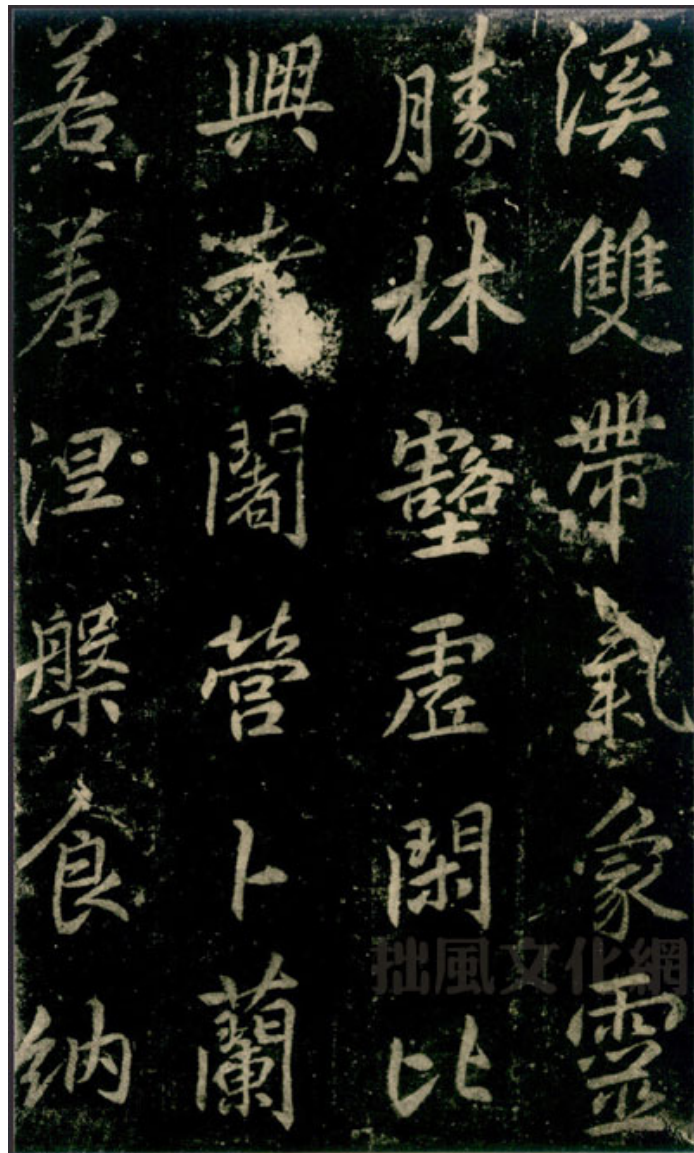 溪雙帶氣象靈
勝林壑虛閑比
興耆闍營卜蘭
若羞涅槃食納
拙風文化網